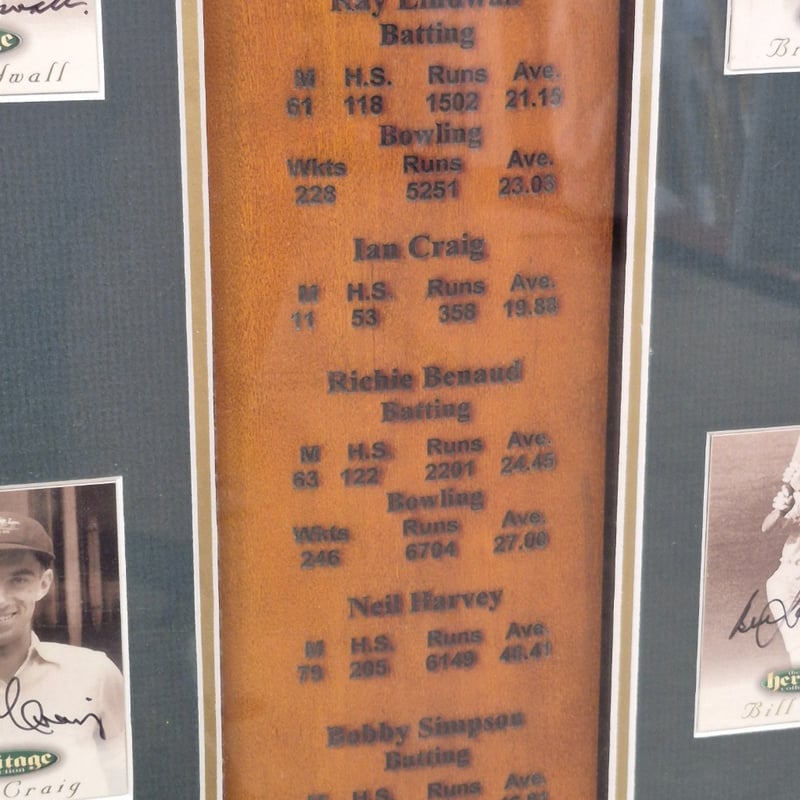 Ray Lindwall
Batting
M H.S. Runs Ave.
61 118 1502 21.15
Bowling
Wkts Runs Ave.
228 5251 23.03
Ian Craig
M H.S. Runs Ave.
11 53 358 19.88
Richie Benaud
Batting
M H.S. Runs Ave.
63 122 2201 24.45
Bowling
Wkts Runs Ave.
246 6704 27.00
Neil Harvey
M H.S. Runs Ave.
79 205 6149 48.41
Bobby Simpson
Batting
M H.S. Runs Ave.
dwall
Craig
itage
Craig
Br
her
Bill